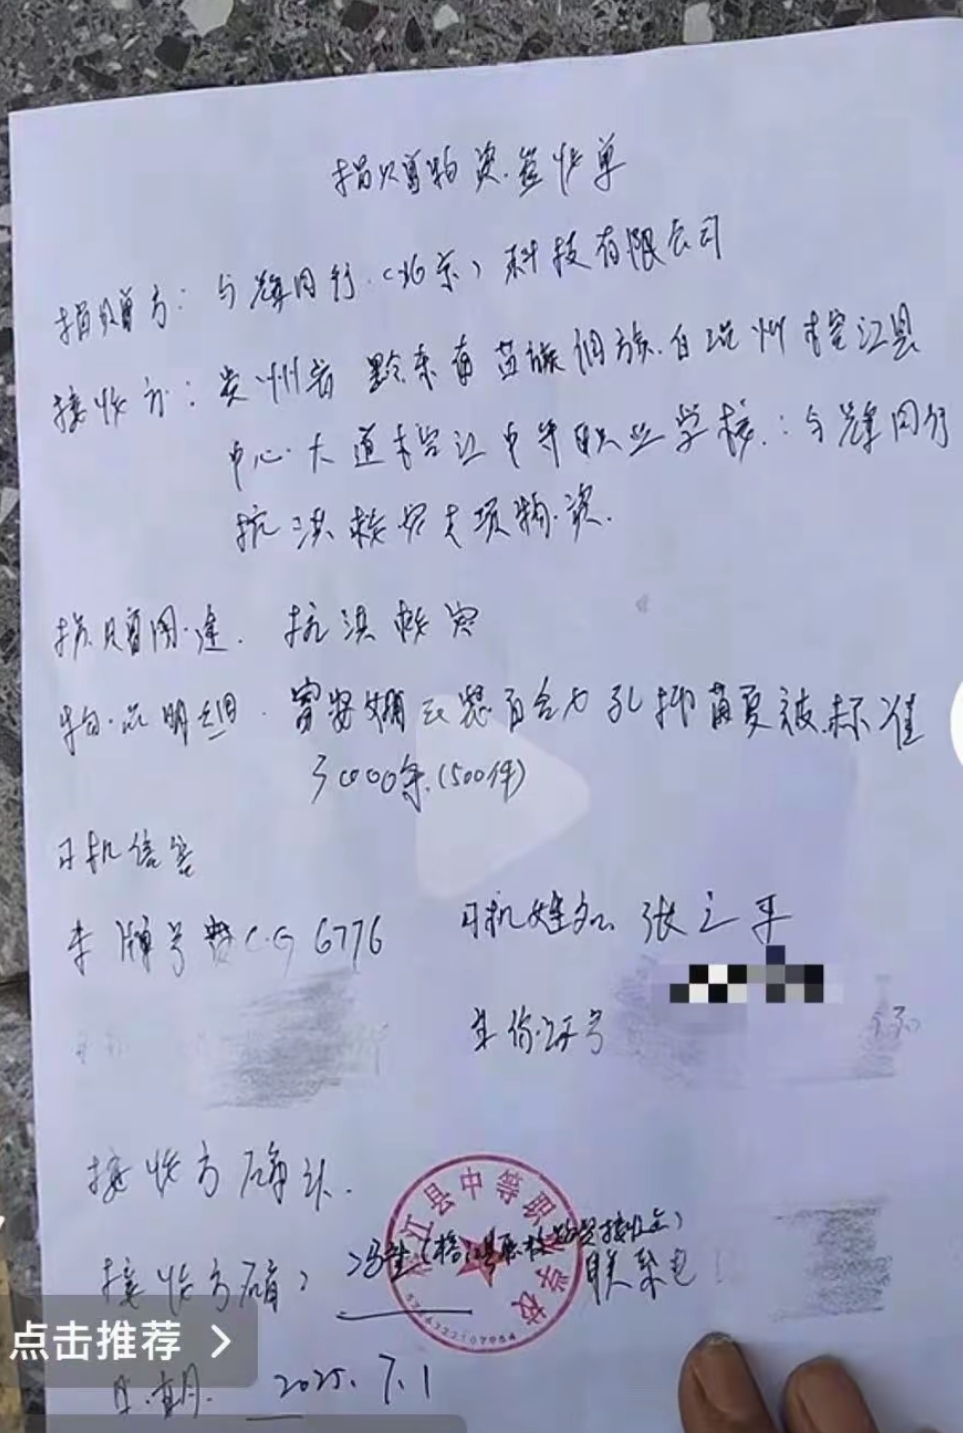 捐赠物资签收单
捐赠方：与辉同行（北京）科技有限公司
接收方：贵州省黔东南苗族侗族自治州榕江县
中心大道榕江中等职业学校：与辉同行
抗洪救灾专项物资.
捐赠用途. 抗洪救灾
物品明细. 富安娜 百合七孔抑菌夏被标准
3000条.(500件)
司机信息
车牌号 CG 6776 司机姓名 张立平
身份证号
接收方确认.
江县中等职业学校
接收方 冯 （榕江县职校物资接收点） 联系电
点击推荐 >
日期. 2025.7.1